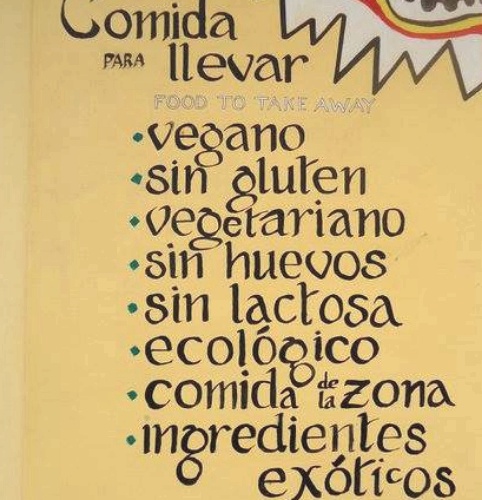 Comida
PARA llevar
FOOD TO TAKE AWAY
•vegano
•sin gluten
•vegetariano
•sin huevos
•sin lactosa
•ecológico
•comida de la zona
•ingredientes
exóticos